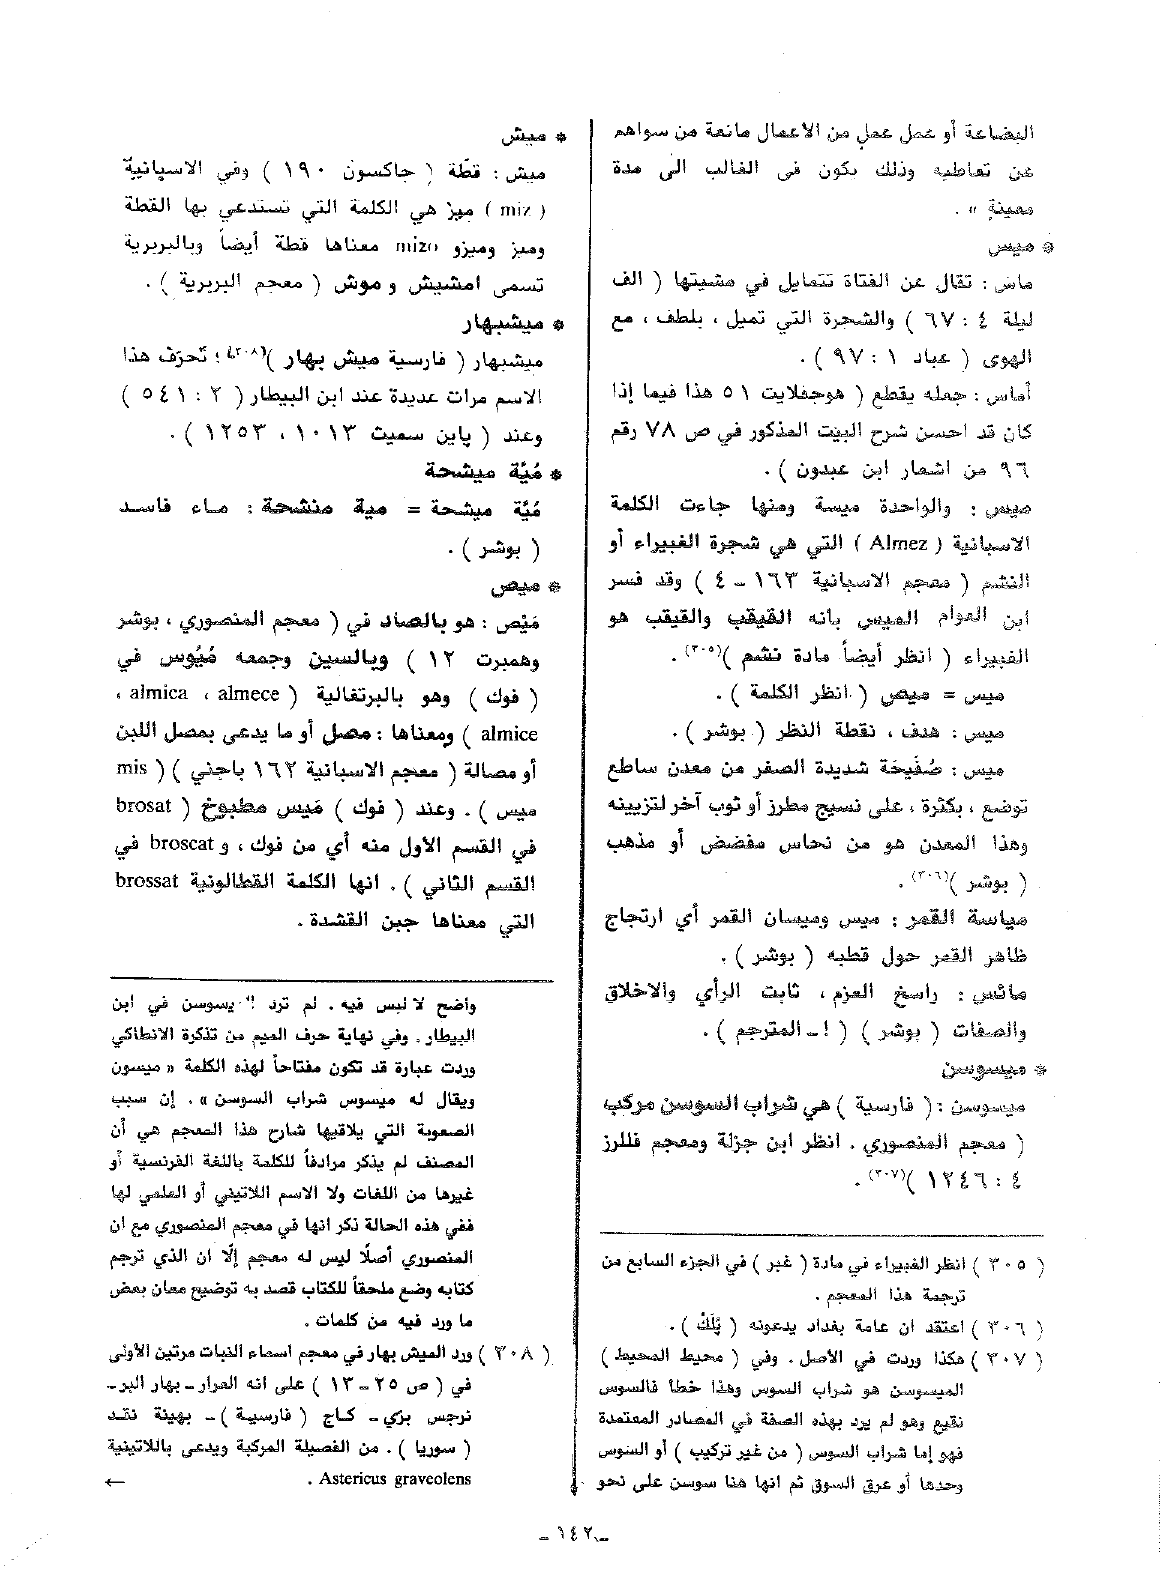 البضاعة أو عمل عمل من الاعمال مانعة من سواهم
عن تعاطيه وذلك يكون في الغالب الى مدة
معينة » .
* ميس
ماس : تقال عن الفتاة تتمايل في مشيتها ( الف
ليلة ٤ : ٦٧ ) والشجرة التي تميل ، بلطف ، مع
الهوى ( عباد ١ : ٩٧ ) .
أماس : جمله يقطع ( هوجفلايت ٥١ هذا فيما إذا
كان قد احسن شرح البيت المذكور في ص ٧٨ رقم
٩٦ من اشعار ابن عبدون ) .
ميس : والواحدة ميسة ومنها جاءت الكلمة
الاسبانية ( Almez ) التي هي شجرة الغبيراء أو
النشم ( معجم الاسبانية ١٦٣ ـ ٤ ) وقد فسر
ابن العوام الميس بانه القيقب والقيقب هو
الغبيراء ( انظر أيضاً مادة نشم )(٣٠٥) .
ميس = ميص ( انظر الكلمة ) .
ميس : هدف ، نقطة النظر ( بوشر ) .
ميس : صُفَيحَة شديدة الصفر من معدن ساطع
توضع ، بكثرة ، على نسيج مطرز أو ثوب آخر لتزيينه
وهذا المعدن هو من نحاس مفضض أو مذهب
( بوشر )(٣٠٦) .
مياسة القمر : ميس وميسان القمر أي ارتجاج
ظاهر القمر حول قطبه ( بوشر ) .
مائس : راسخ العزم ، ثابت الرأي والاخلاق
والصفات ( بوشر ) ( ! ـ المترجم ) .
* ميسوسن
ميسوسن : ( فارسية ) هي شراب السوسن مركب
( معجم المنصوري . انظر ابن جزلة ومعجم فللرز
٤ : ١٢٤٦ )(٣٠٧) .
( ٣٠٥ ) انظر الغبيراء في مادة ( غبر ) في الجزء السابع من
ترجمة هذا المعجم .
( ٣٠٦ ) اعتقد ان عامة بغداد يدعونه ( پَلَكْ ) .
( ٣٠٧ ) هكذا وردت في الأصل . وفي ( محيط المحيط )
الميسوسن هو شراب السوس وهذا خطأ فالسوس
نقيع وهو لم يرد بهذه الصفة في المصادر المعتمدة
فهو إما شراب السوس ( من غير تركيب ) أو السوس
وحدها أو عرق السوق ثم انها هنا سوسن على نحو
* ميش
ميش : قطّة ( جاكسون ١٩٠ ) وفي الاسپانيّة
( miz ) ميز هي الكلمة التي تستدعي بها القطة
وميز وميزو mizo معناها قطة أيضاً وبالبربرية
تسمى امشيش و موش ( معجم البربرية ) .
* ميشبهار
ميشبهار ( فارسية ميش بهار )(٣٠٨) ؛ تَحرّف هذا
الاسم مرات عديدة عند ابن البيطار ( ٢ : ٥٤١ )
وعند ( پاين سميث ١٠١٣ ، ١٢٥٣ ) .
* مُيَّة ميشحة
مُيَّة ميشحة = مية منشحة : ماء فاسد
( بوشر ) .
* ميص
مَيْص : هو بالصاد في ( معجم المنصوري ، بوشر
وهمبرت ١٢ ) وبالسين وجمعه مُيُوس في
( فوك ) وهو بالبرتغالية ( almica ، almece ،
almice ) ومعناها : مصل أو ما يدعى بمصل اللبن
أو مصالة ( معجم الاسبانية ١٦٢ باجني ) ( mis
ميس ) . وعند ( فوك ) مَيس مطبوخ ( brosat
في القسم الأول منه أي من فوك ، و broscat في
القسم الثاني ) . انها الكلمة القطالونية brossat
التي معناها جبن القشدة .
واضح لا لبس فيه . لم ترد ! يسوسن في ابن
البيطار . وفي نهاية حرف الميم من تذكرة الانطاكي
وردت عبارة قد تكون مفتاحاً لهذه الكلمة « ميسون
ويقال له ميسوس شراب السوسن » . إن سبب
الصعوبة التي يلاقيها شارح هذا المعجم هي أن
المصنف لم يذكر مرادفاً للكلمة باللغة الفرنسية أو
غيرها من اللغات ولا الاسم اللاتيني أو العلمي لها
ففي هذه الحالة نكر انها في معجم المنصوري مع ان
المنصوري أصلًا ليس له معجم إلّا ان الذي ترجم
كتابه وضع ملحقاً للكتاب قصد به توضيح معان بعض
ما ورد فيه من كلمات .
( ٣٠٨ ) ورد الميش بهار في معجم اسماء النبات مرتين الأولى
في ( ص ٢٥ ـ ١٣ ) على انه العرار ـ بهار البر ـ
نرجس بري ـ كاج ( فارسية ) ـ بهينة نقد
( سوريا ) . من الفصيلة المركبة ويدعى باللاتينية
Astericus graveolens .
←
ـ ١٤٢ ـ